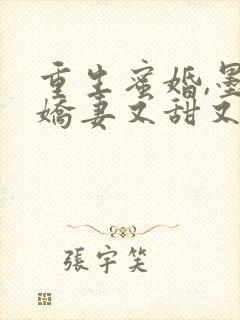 重生蜜婚,墨
嬌妻又甜又
張宇笑